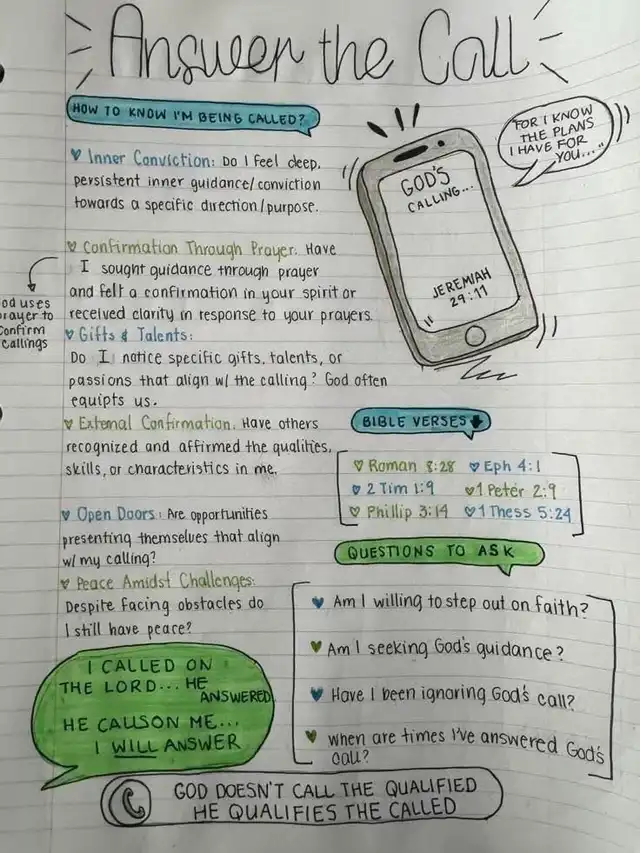 Answer the Call
HOW TO KNOW I'M BEING CALLED?
Inner Conviction: Do I feel deep,
persistent inner guidance/conviction
towards a specific direction/purpose.
Confirmation Through Prayer: Have
I sought guidance through prayer
and felt a confirmation in your spirit or
received clarity in response to your prayers.
od uses
rayer to
confirm
callings
Gifts & Talents:
Do I notice specific gifts, talents, or
passions that align w/ the calling? God often
equipts us.
External Confirmation. Have others
recognized and affirmed the qualities,
skills, or characteristics in me.
Open Doors: Are opportunities
presenting themselves that align
w/ my calling?
Peace Amidst Challenges:
Despite facing obstacles do
I still have peace?
I CALLED ON
THE LORD... HE
ANSWERED
HE CALLSON ME...
I WILL ANSWER
"FOR I KNOW
THE PLANS
I HAVE FOR
YOU..."
GOD'S
CALLING...
JEREMIAH
29:11
BIBLE VERSES
Roman 8:28 Eph 4:1
2 Tim 1:9 1 Peter 2:9
Phillip 3:14 1 Thess 5:24
QUESTIONS TO ASK
Am I willing to step out on faith?
Am I seeking God's guidance?
Have I been ignoring God's call?
when are times I've answered God's
call?
GOD DOESN'T CALL THE QUALIFIED
HE QUALIFIES THE CALLED